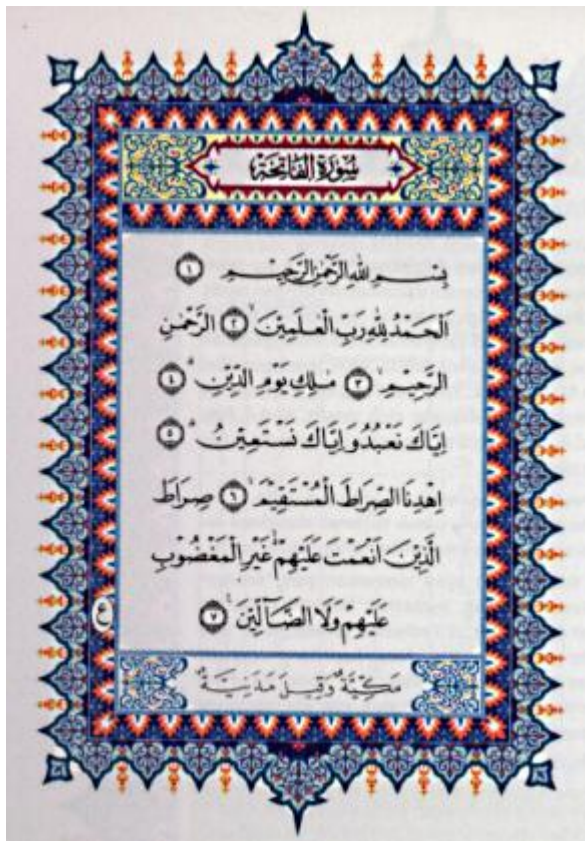 سُورَةُ الْفَاتِحَةِ
بِسْمِ اللّٰهِ الرَّحْمٰنِ الرَّحِيْمِ ١
اَلْحَمْدُ لِلّٰهِ رَبِّ الْعٰلَمِيْنَ ۙ ٢ الرَّحْمٰنِ
الرَّحِيْمِ ۙ ٣ مٰلِكِ يَوْمِ الدِّيْنِ ۗ ٤
اِيَّاكَ نَعْبُدُ وَاِيَّاكَ نَسْتَعِيْنُ ۗ ٥
اِهْدِنَا الصِّرَاطَ الْمُسْتَقِيْمَ ۙ ٦ صِرَاطَ
الَّذِيْنَ اَنْعَمْتَ عَلَيْهِمْ ۙ غَيْرِ الْمَغْضُوْبِ
عَلَيْهِمْ وَلَا الضَّآلِّيْنَ ࣖ ٧
ع
مَكِّيَّةٌ وَقِيْلَ مَدَنِيَّةٌ